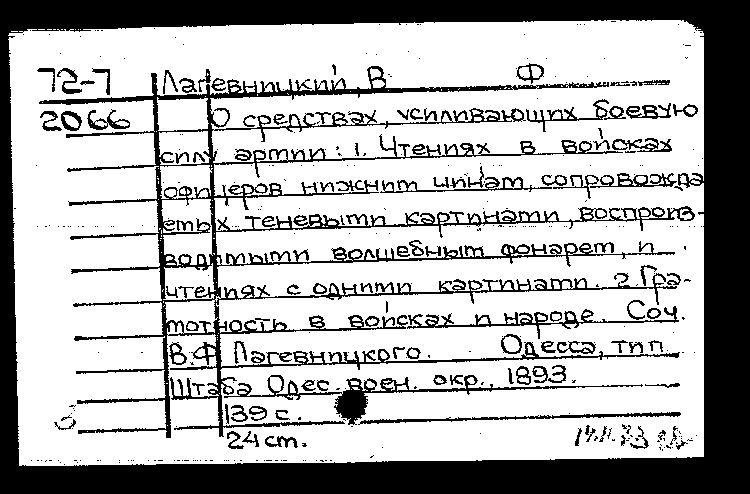 72-7 Лагевницкий, В Ф
2066 О средствах, усиливающих боевую
силу армии: 1. Чтениях в войсках
офицеров нижним чинам, сопровожда
емых теневыми картинами, воспроиз-
водимыми волшебным фонарем, и
чтениях с одними картинами. 2 Гра-
мотность в войсках и народе. Соч.
В.Ф Лагевницкого. Одесса, тип
Штаба Одес. воен. окр., 1893.
139 с.
24 см.